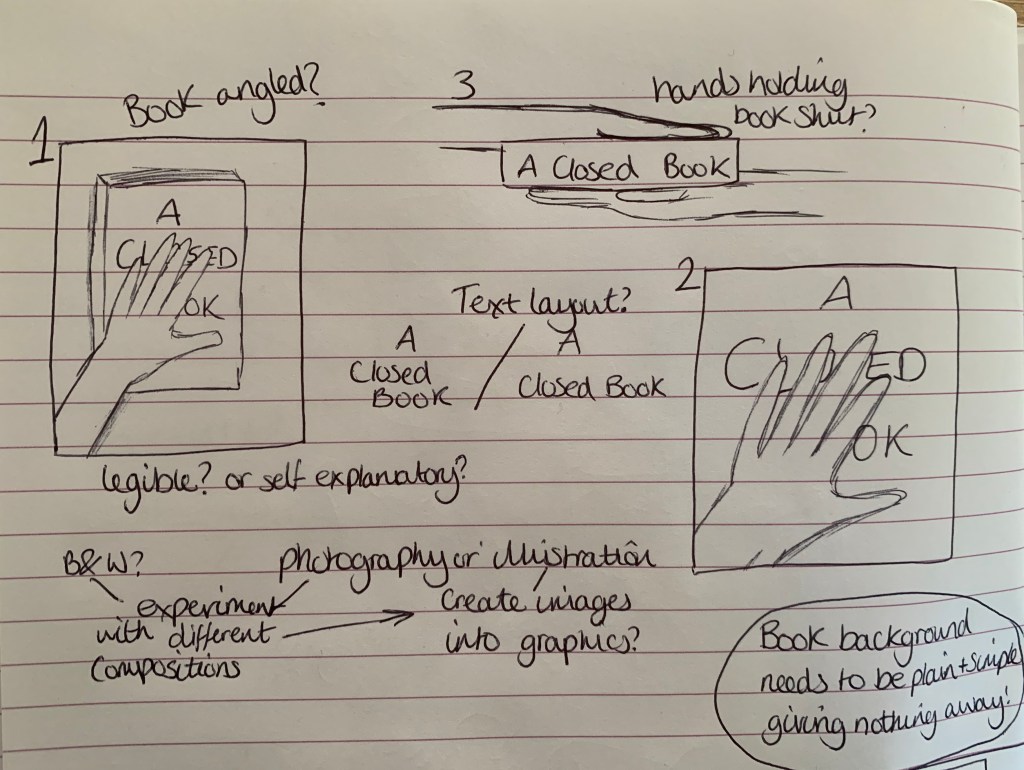 Book angled?
1
A
CLOSED
OK
3
hands holding
book shut?
A Closed Book
Text layout?
A
Closed
BOOK
/
A
Closed Book
2
A
C ED
OK
legible? or self explanatory?
B&W?
photography or illustration
experiment
with different
compositions
Create images
into graphics?
Book background
needs to be plain + simple
giving nothing away!